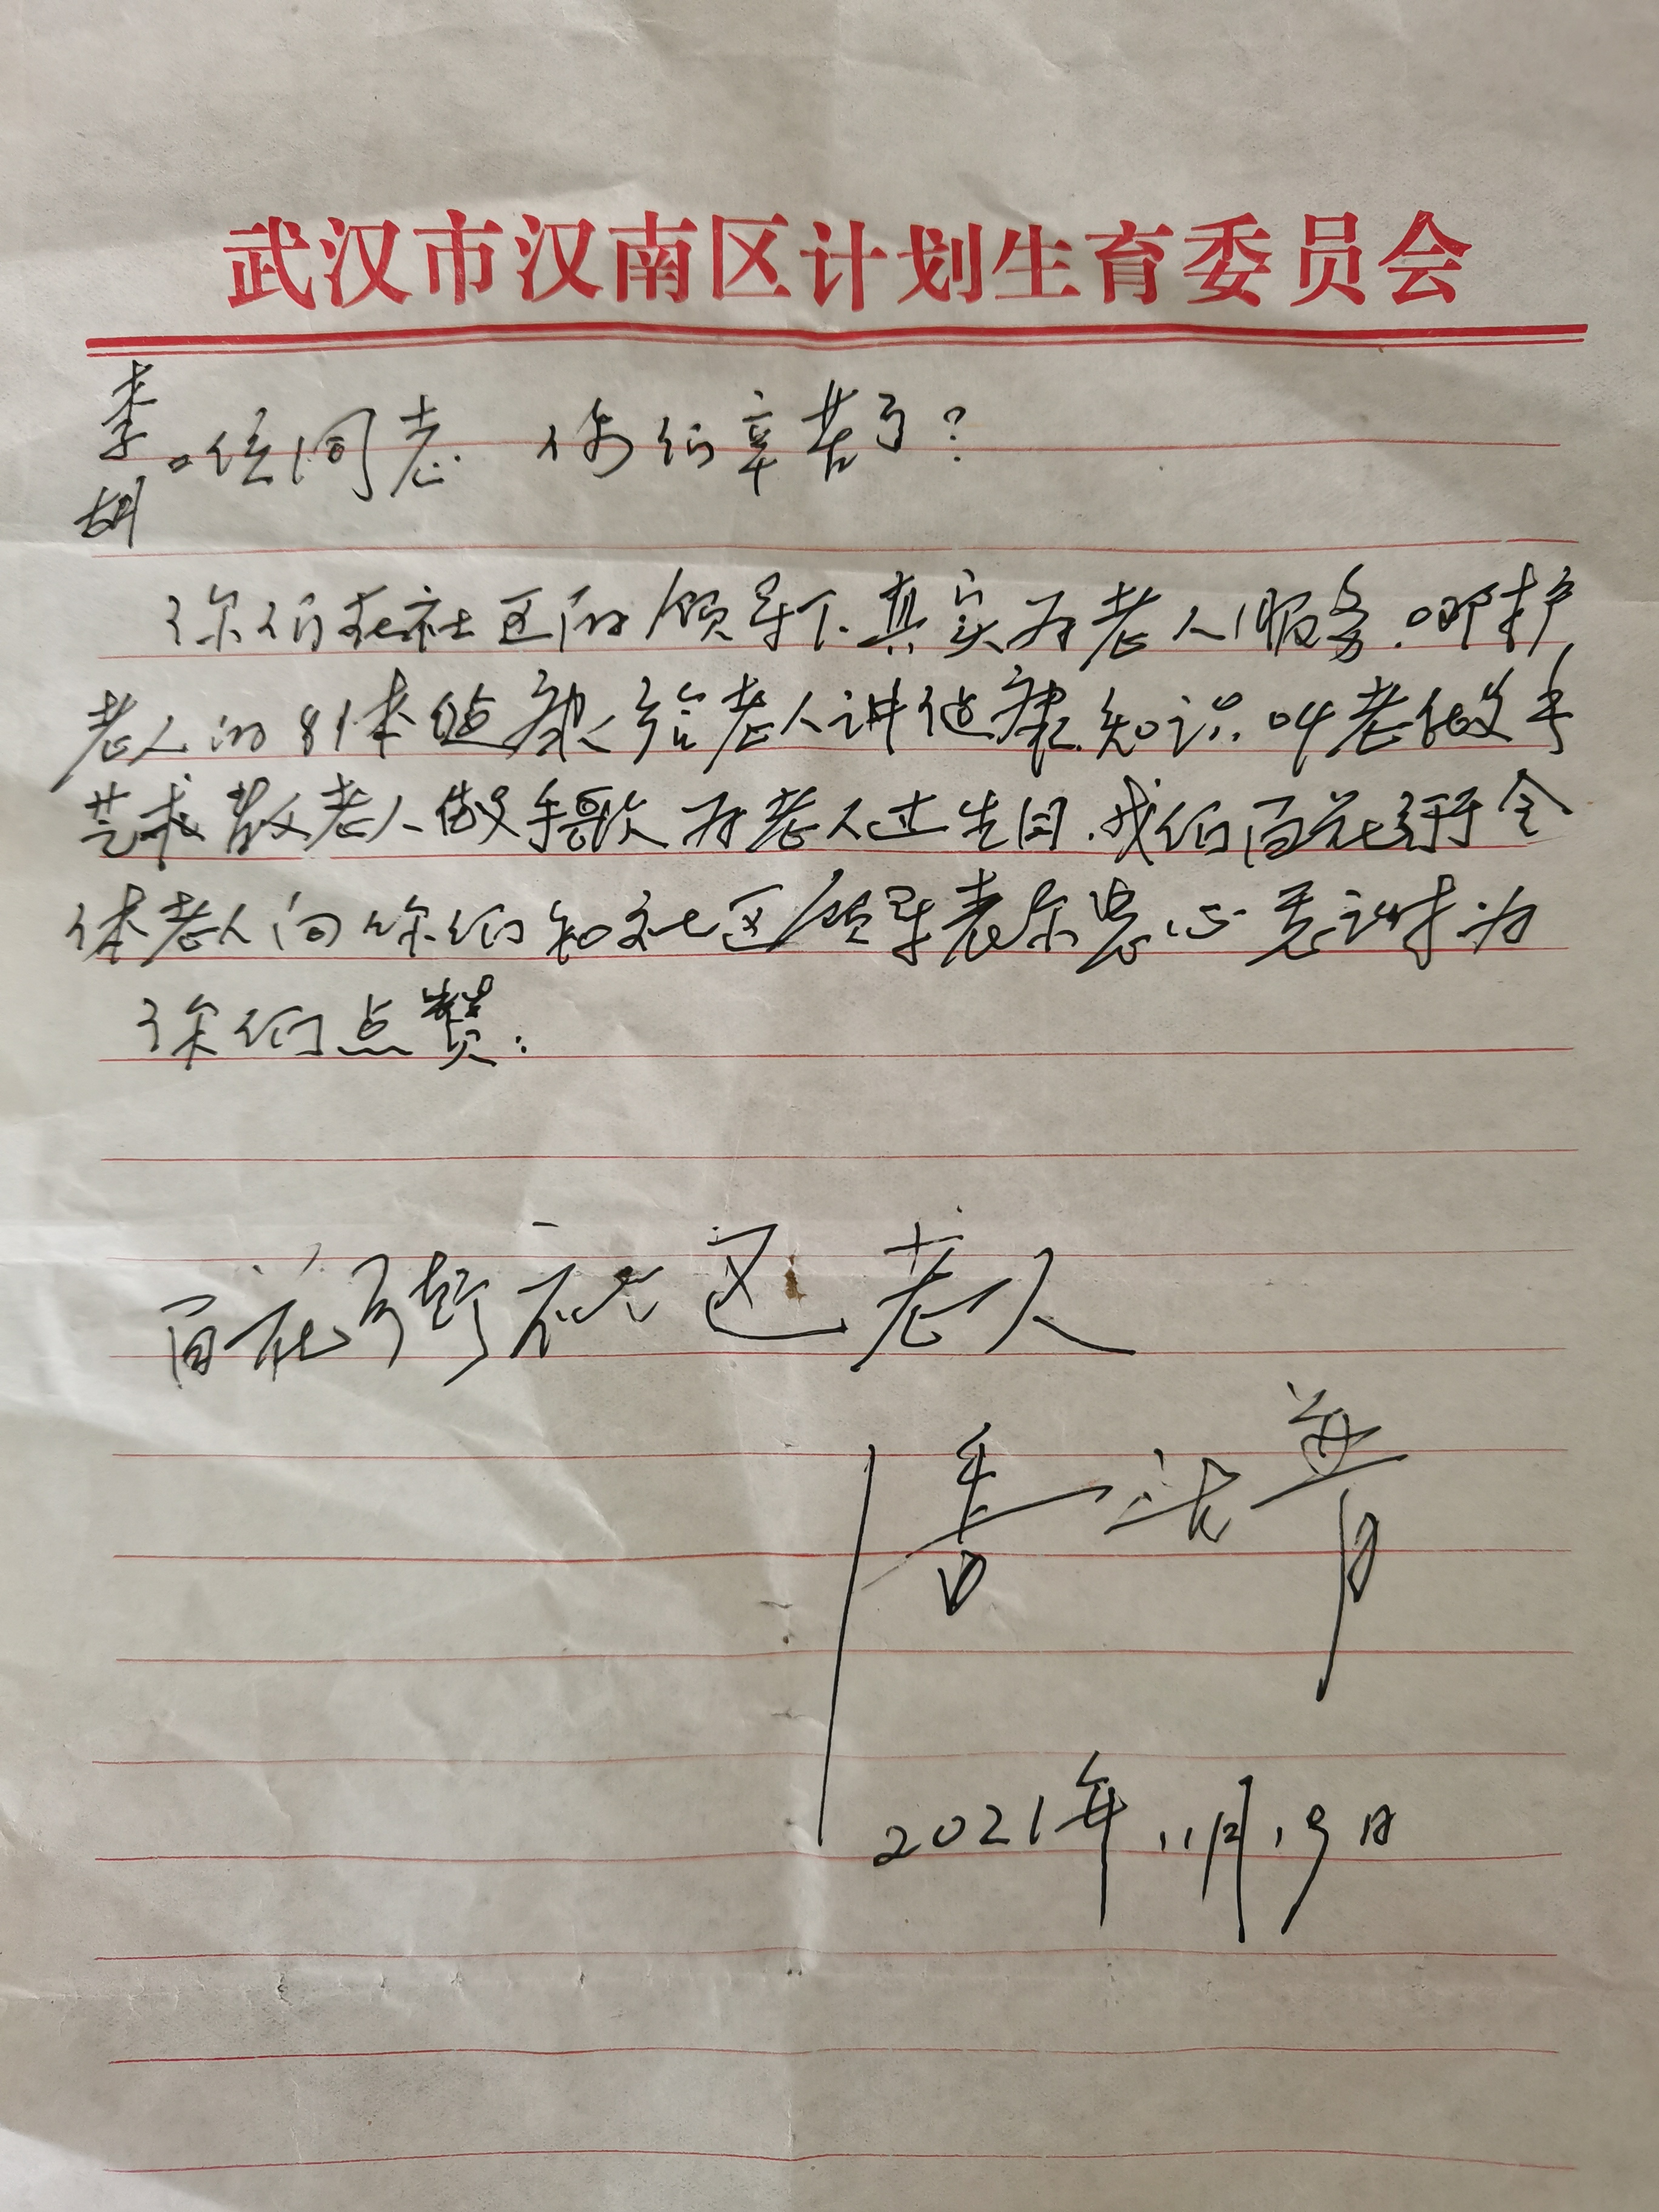 武汉市汉南区计划生育委员会
李
胡 位同志 你们辛苦了?
你们在社区的领导下.真实为老人服务.
老人的身体健康给老人讲健康知识.叫老做手
艺术 教老人做手 为老人过生日.我们百花亭全
体老人向你们和社区领导表示忠心 为
你们点赞:
百花亭社区老人
2021年.11月19日